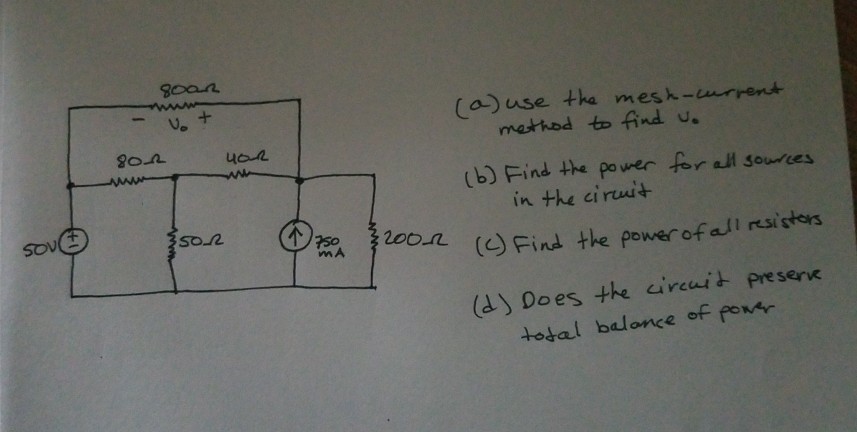 800Ω
- Vo +
80Ω
40Ω
50V
+
-
50Ω
750
mA
200Ω
(a) use the mesh-current
method to find vo
(b) Find the power for all sources
in the circuit
(c) Find the power of all resistors
(d) Does the circuit preserve
total balance of power